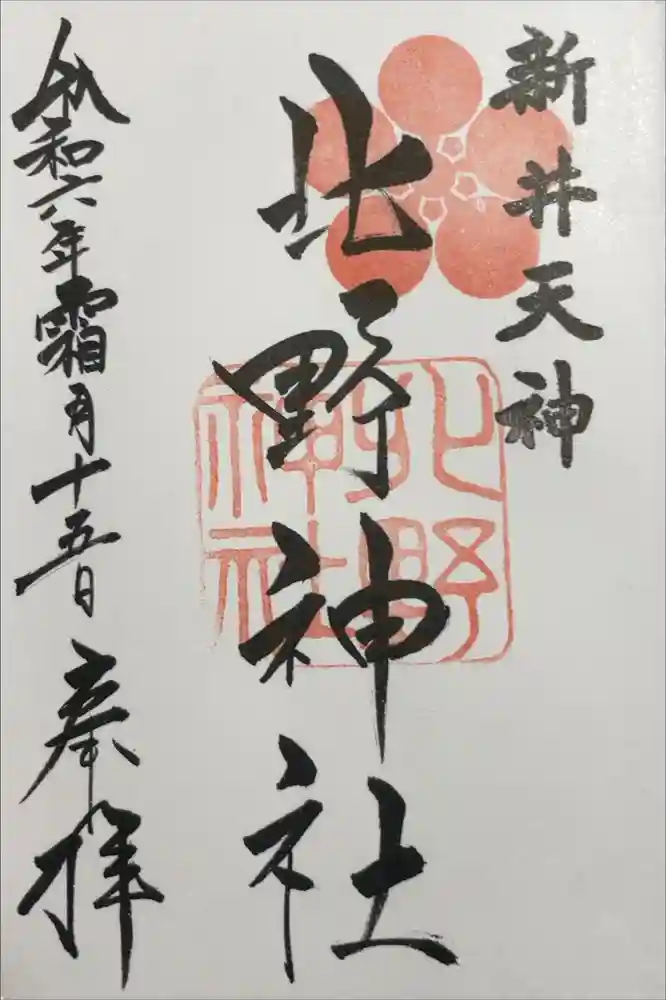 新井天神
北野神社
北野
神社
令和六年霜月十五日 奉拝